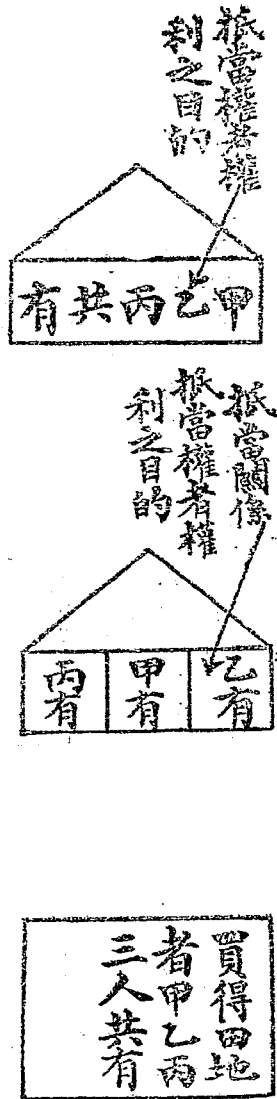 抵當權者權
利之目的
甲乙丙共有
抵當關係
抵當權者權
利之目的
乙有
甲有
丙有
買得田地
者甲乙丙
三人共有